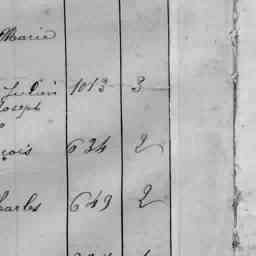 Marie
Julien 1013 3
Joseph
çois 634 2
harles 649 2